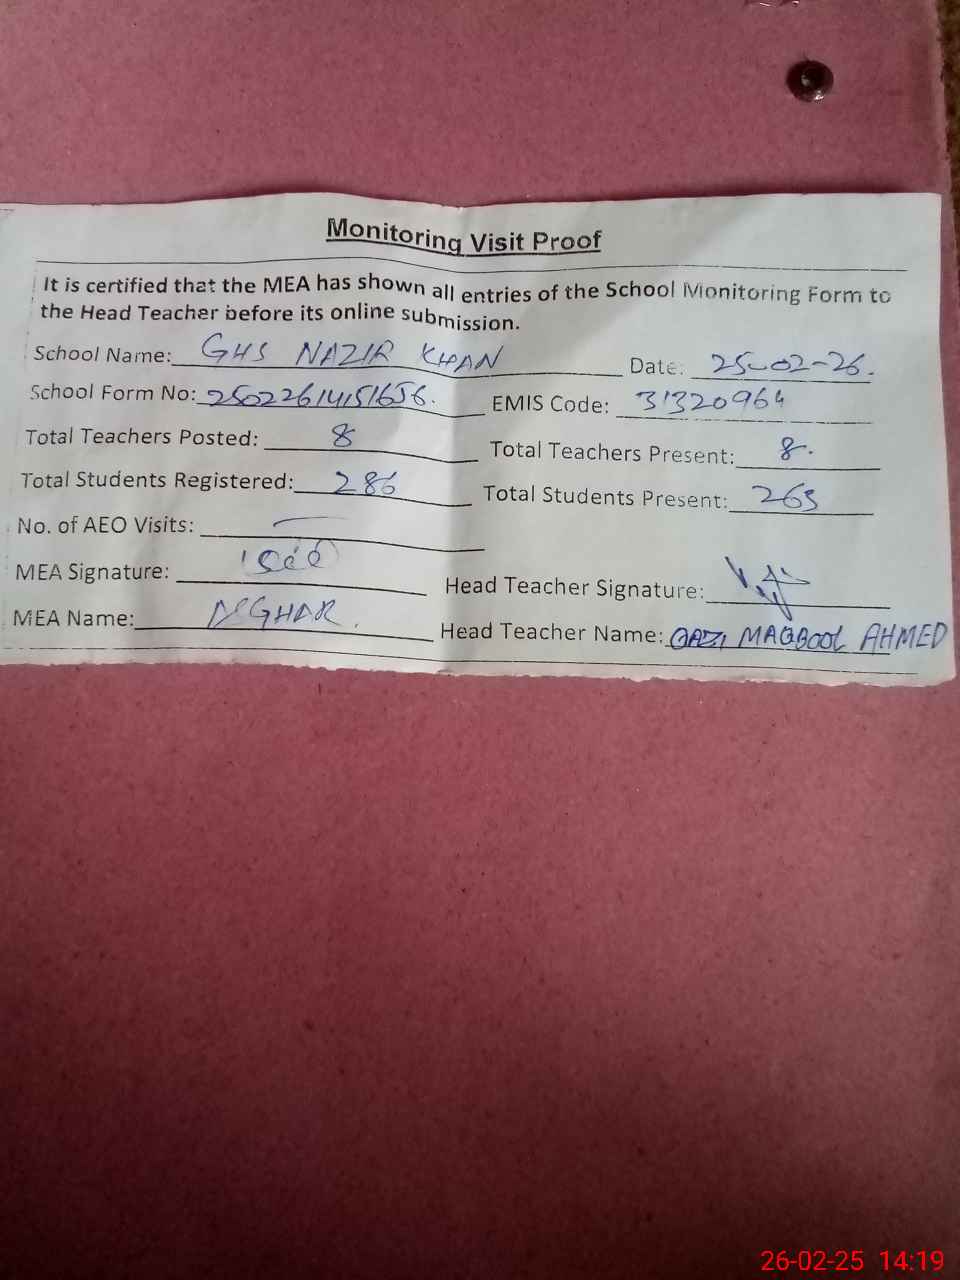 Monitoring Visit Proof
It is certified that the MEA has shown all entries of the School Monitoring Form to
the Head Teacher before its online submission.
School Name: GHS NAZIR KHAN Date: 25-02-26.
School Form No: 25022614151656. EMIS Code: 31320964
Total Teachers Posted: 8 Total Teachers Present: 8.
Total Students Registered: 286 Total Students Present: 263
No. of AEO Visits: —
MEA Signature: Head Teacher Signature:
MEA Name: ASGHAR. Head Teacher Name: QAZI MAQBOOL AHMED
26-02-25 14:19